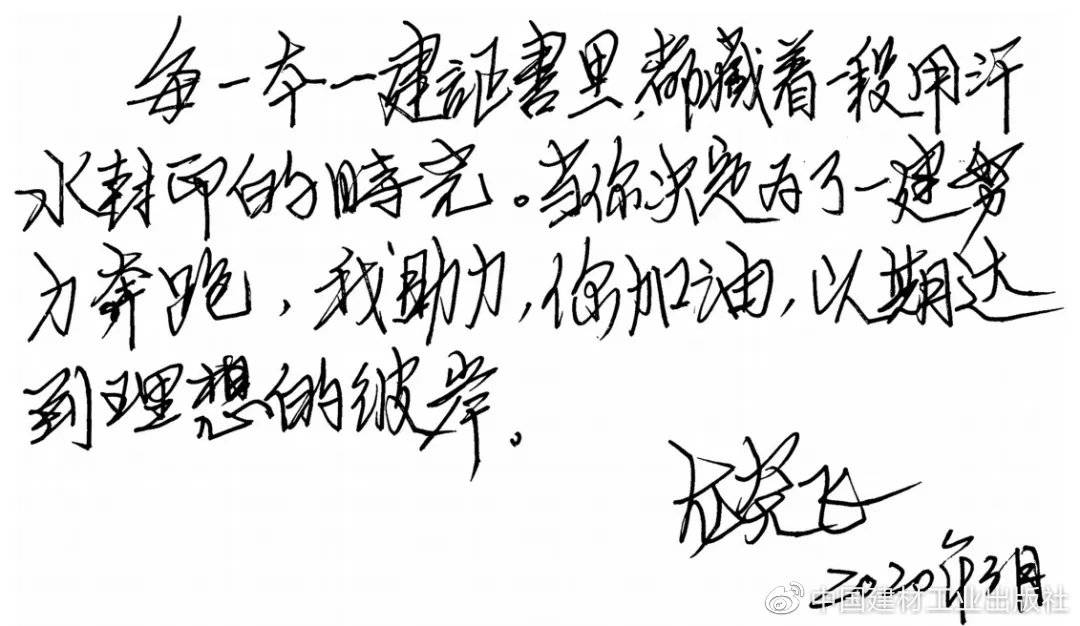 每一本一建証書里，都藏着一段用汗
水封印的時光。当你决定为了一建努
力奔跑，我助力，你加油，以期达
到理想的彼岸。
飞
2020年3月
中国建材工业出版社